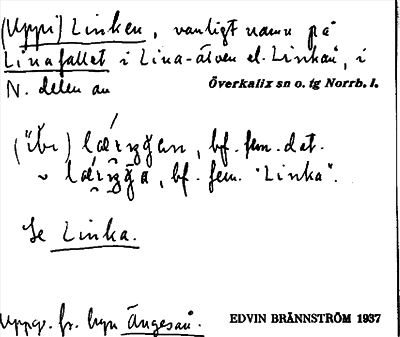 (Uppi) Linken, vanligt namn på
Linafallet i Lina-älven el. Linkån, i
N. delen av
Överkalix sn o. tg Norrb. l.
("ibɩ) , bf. fem. dat.
bf. fem. "Linka".
Se Linka.
Uppg. fr. byn Ängeså.
EDVIN BRÄNNSTRÖM 1937